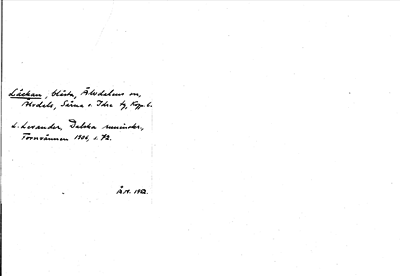 Läckan, Åsta, Älvdalens sn,
Älvdals, Särna o. Idre tg, Kopp. l.
L. Levander, Dalska runinskr.,
Fornvännen 1906, s. 72.
1952.